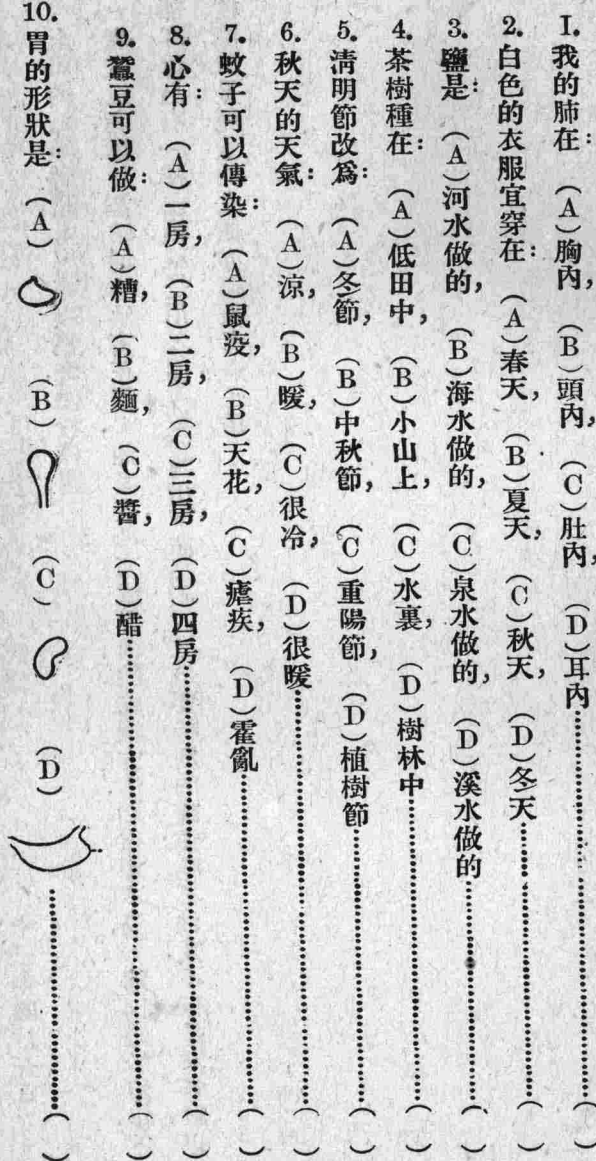 1. 我的肺在：（A）胸內，（B）頭內，（C）肚內，（D）耳內（　）
2. 白色的衣服宜穿在：（A）春天，（B）夏天，（C）秋天，（D）冬天（　）
3. 鹽是：（A）河水做的，（B）海水做的，（C）泉水做的，（D）溪水做的（　）
4. 茶樹種在：（A）低田中，（B）小山上，（C）水裏，（D）樹林中（　）
5. 清明節改爲：（A）冬節，（B）中秋節，（C）重陽節，（D）植樹節（　）
6. 秋天的天氣：（A）涼，（B）暖，（C）很冷，（D）很暖（　）
7. 蚊子可以傳染：（A）鼠疫，（B）天花，（C）瘧疾，（D）霍亂（　）
8. 心有：（A）一房，（B）二房，（C）三房，（D）四房（　）
9. 蠶豆可以做：（A）糟，（B）麵，（C）醬，（D）醋（　）
10. 胃的形狀是：（A）（B）（C）（D）（　）